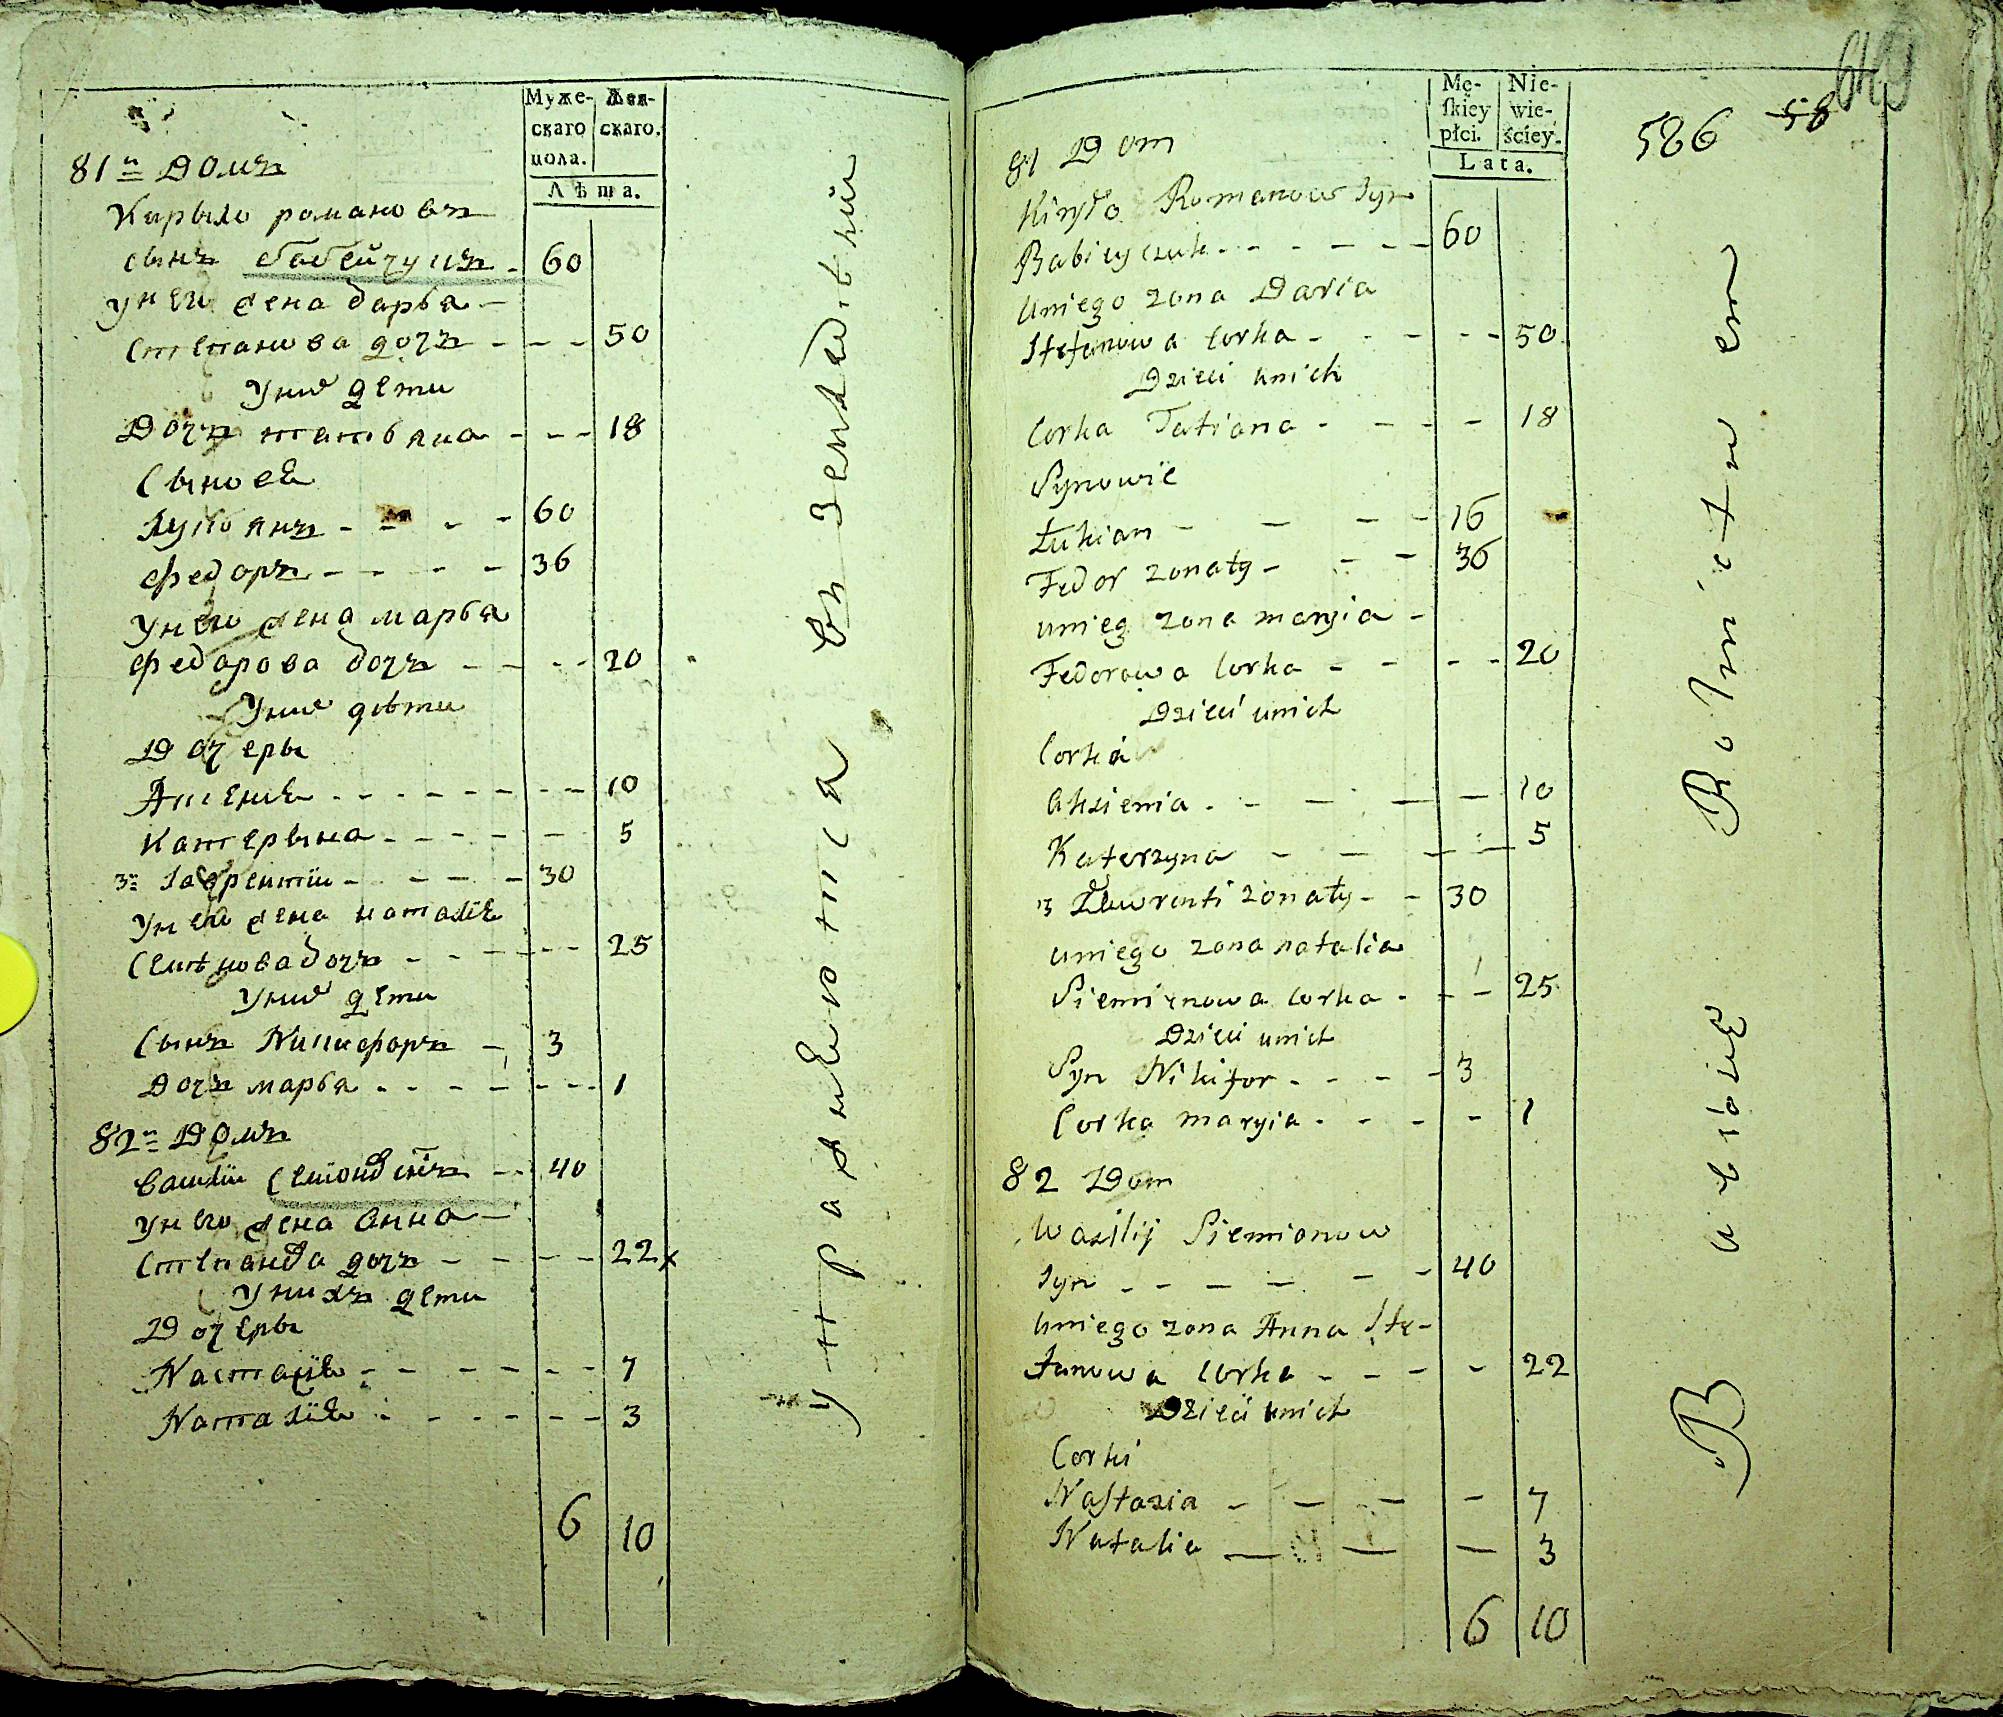 Муже-
скаго
пола.
Жен-
скаго.
Лѣта.
81й Домъ
Кирыло романовъ
сынъ бабейчукъ - 60
У него жена дарья -
степанова дочъ - - - 50
У них дети
Дочъ татьяна - - - 18
Сыновя
Лукьянъ - - - - 60
федоръ - - - - 36
У него жена марья
федарова дочъ - - - - 20
У них дѣти
Дочеры
Аксения - - - - - - - - 10
Катерына - - - - - - 5
3й Лаврентiи - - - - - 30
У него жена наталiя
Семѣнова дочъ - - - - - - 25
У них дети
Сынъ Никифоръ - 3
Дочъ марья - - - - - - - 1
82й Домъ
Василiи Семiонов сiнъ - - 40
У него жена Анна -
степанова дочъ - - - - 22 x
У нихъ дети
Дочеры
Настазiя - - - - - - 7
Наталiя - - - - - - 3
6 10
Упражняются въ Земледѣлiи
649
58
586
Mę-
skiey
płci.
Nie-
wie-
ściey.
Lata.
81 Dom
Kiryło Romanow Syn
Babieyczuk - - - - - - 60
Uniego zona Daria
Stefanowa Corka - - - - - 50
Dzieci unich
Corka Tatiana - - - - 18
Synowie
Łukian - - - - 16
Fedor zonaty - - - 36
unieg zona maryia -
Fedorowa Corka - - - - 20
Dzieci unich
Corka
Aksienia - - - - - 10
Katerzyna - - - - 5
3 Ławrenti zonaty - - 30
uniego zona natalia
Siemienowa corka - - - 25
Dzieci unich
Syn Nikifor - - - - 3
Corka maryia - - - - - 1
82 Dom
Wasilij Siemionow
Syn - - - - - - 40
Uniego zona Anna Ste-
fanowa Corka - - - - 22
Dzieci unich
Corki
Nastazia - - - - 7
Natalia - - - 3
6 10
Bawią się Rolnictwem